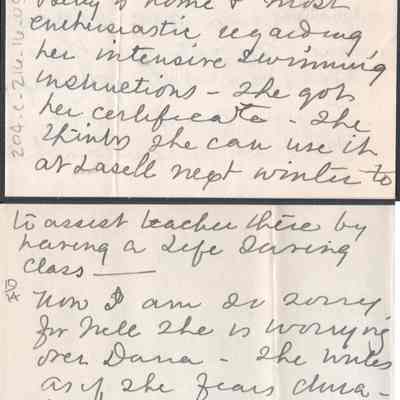 Betty is home & most
enthusiastic regarding
her intensive swimming
instructions - She got
her certificate - She
thinks she can use it
at Lasell next winter to
to assist teacher there by
having a Life Saving
Class —
Now I am so sorry
for Nell she is worrying
over Dana - She writes
as if she fears
204.C-216.16.05